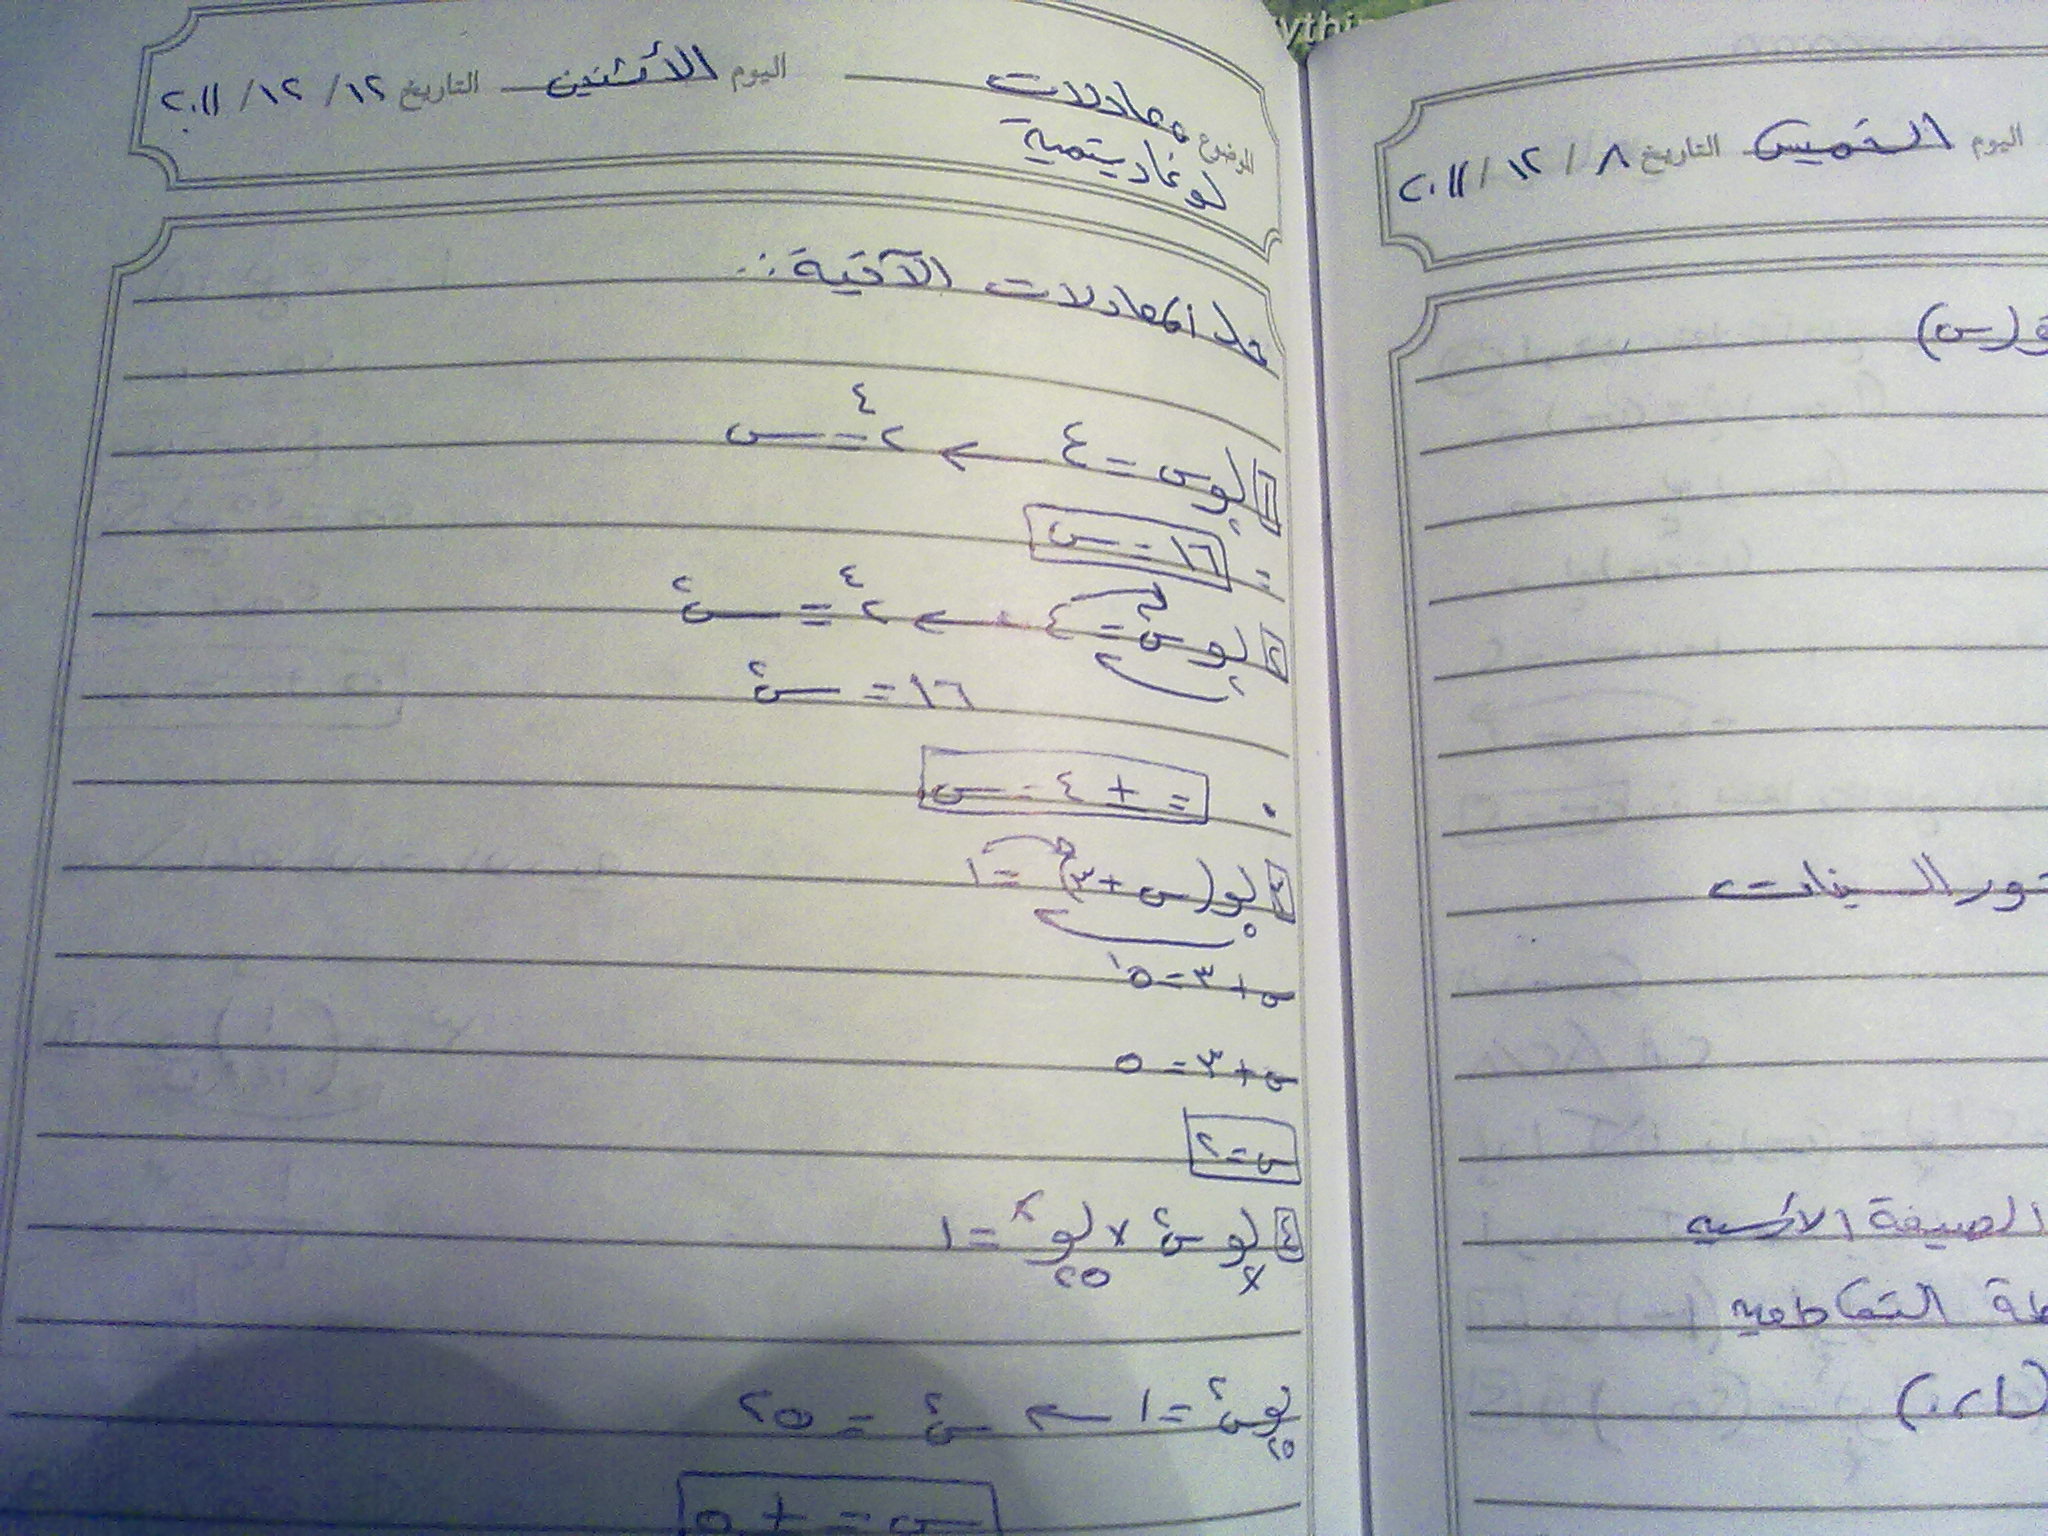 الموضوع معادلات لوغاريتمية اليوم الأثنين التاريخ ١٢ / ١٢ / ٢٠١١
حل المعادلات الآتية :.
١ لو٢ س = ٤ ← ٢^٤ = س
= ١٦ = س
٢ لو٢ س^٢ = ٤ ← ٢^٤ = س^٢
١٦ = س^٢
= + ٤ = س
٣ لو٥ (س + ٣) = ١
س + ٣ = ٥^١
س + ٣ = ٥
س = ٢
٤ لو٧ س^٢ × لو٢٥ ٧ = ١
لو٢٥ س^٢ = ١ ← س^٢ = ٢٥
س = + ٥
اليوم الخميس التاريخ ٨ / ١٢ / ٢٠١١
(س)
السينات
الصيغة الأسيه